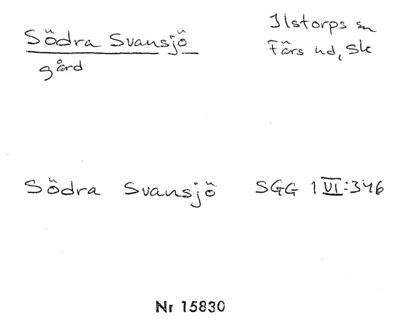 Södra Svansjö
gård
Ilstorps sn
Färs hd, Sk
Södra Svansjö SGG 1 VI:346
Nr 15830